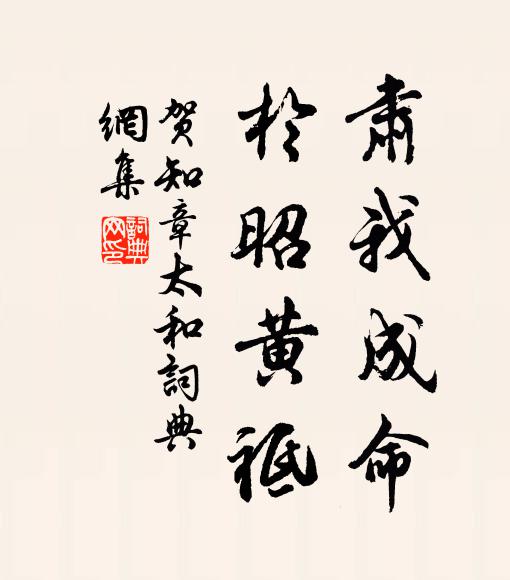 肅我成命
於昭黃祇
賀知章太和詞典
網集
詞典
网印